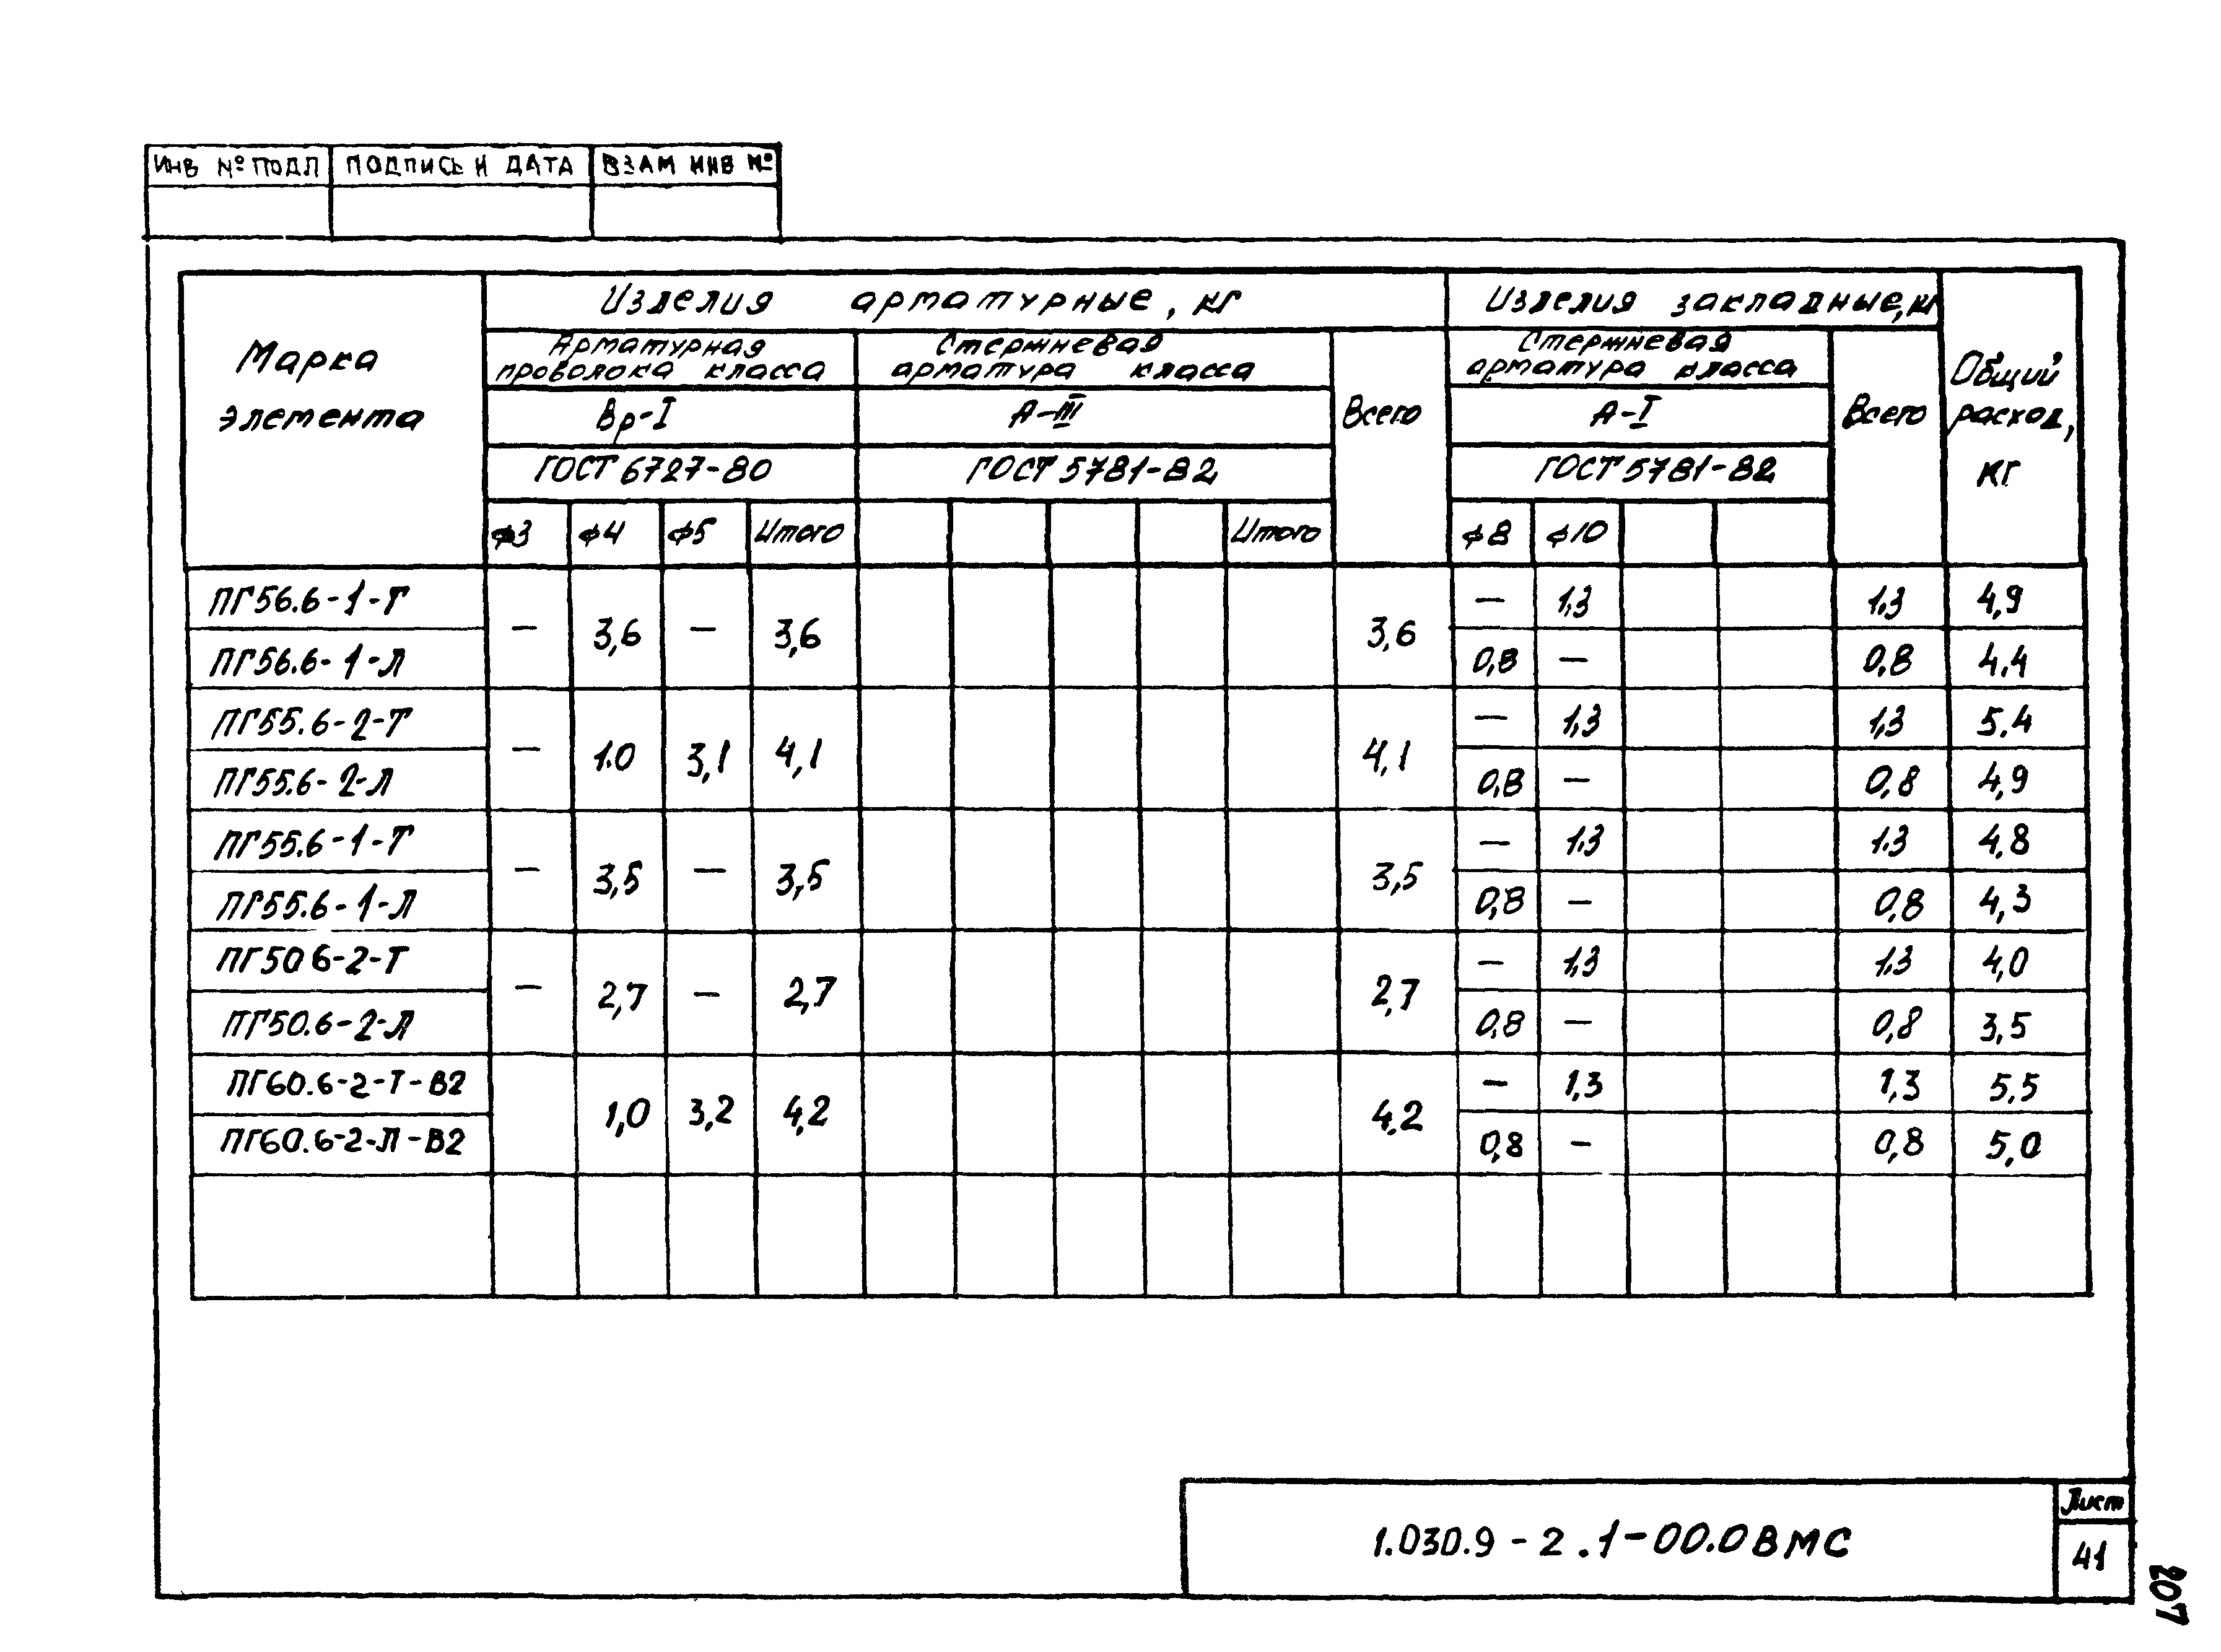 ИНВ № ПОДЛ ПОДПИСЬ И ДАТА ВЗАМ ИНВ №
Марка элемента
Изделия арматурные, кг
Изделия закладные, кг
Общий расход, кг
Арматурная проволока класса
Стержневая арматура класса
Всего
Стержневая арматура класса
Всего
Вр-I
А-III
А-I
ГОСТ 6727-80
ГОСТ 5781-82
ГОСТ 5781-82
ф3 ф4 ф5 Итого Итого ф8 ф10
ПГ56.6-1-Т — 3,6 — 3,6 3,6 — 1,3 1,3 4,9
ПГ56.6-1-Л 0,8 — 0,8 4,4
ПГ55.6-2-Т — 1.0 3,1 4,1 4,1 — 1,3 1,3 5.4
ПГ55.6-2-Л 0,8 — 0,8 4,9
ПГ55.6-1-Т — 3,5 — 3,5 3,5 — 1.3 1.3 4,8
ПГ55.6-1-Л 0,8 — 0,8 4,3
ПГ50 6-2-Т — 2,7 — 2,7 2,7 — 1,3 1,3 4,0
ПГ50.6-2-Л 0,8 — 0,8 3,5
ПГ60.6-2-Т-В2 1,0 3,2 4,2 4,2 — 1,3 1,3 5,5
ПГ60.6-2-Л-В2 0,8 — 0,8 5,0
1.030.9-2.1-00.0ВМС
Лист
41
207